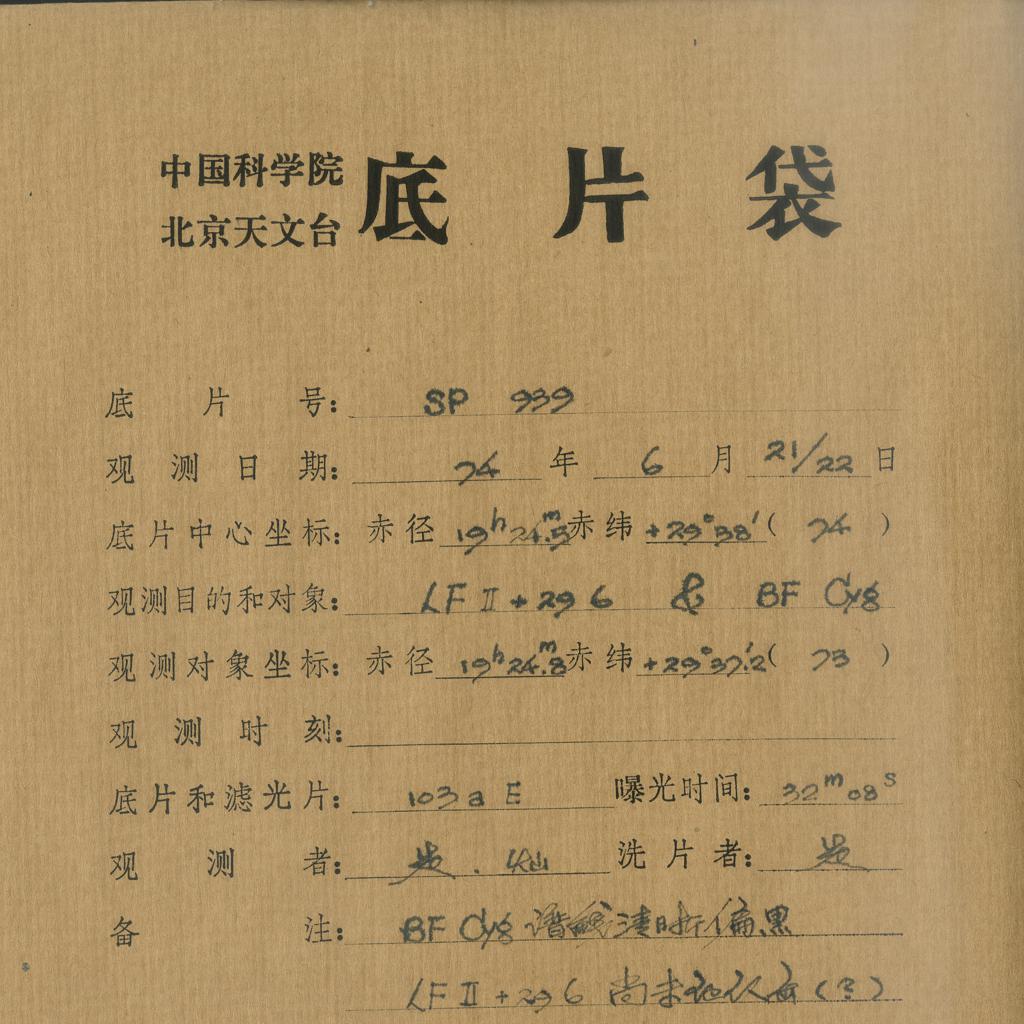 中国科学院
北京天文台
底片袋
底片号: SP 939
观测日期: 74年6月21/22日
底片中心坐标: 赤径 19h24.m5 赤纬 +29°38′( 74 )
观测目的和对象: LF II +29 6 & BF Cyg
观测对象坐标: 赤径 19h24.m8 赤纬 +29°37.′2( 73 )
观测时刻:
底片和滤光片: 103a E 曝光时间: 32m08s
观测者: 灿 洗片者:
备注: BF Cyg 谱线清晰偏黑
LF II +29 6 尚未 (?)